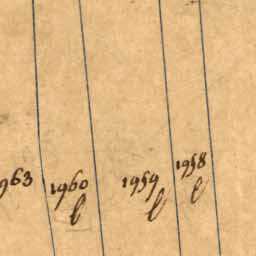 963
1960
l
1959
l
1958
l